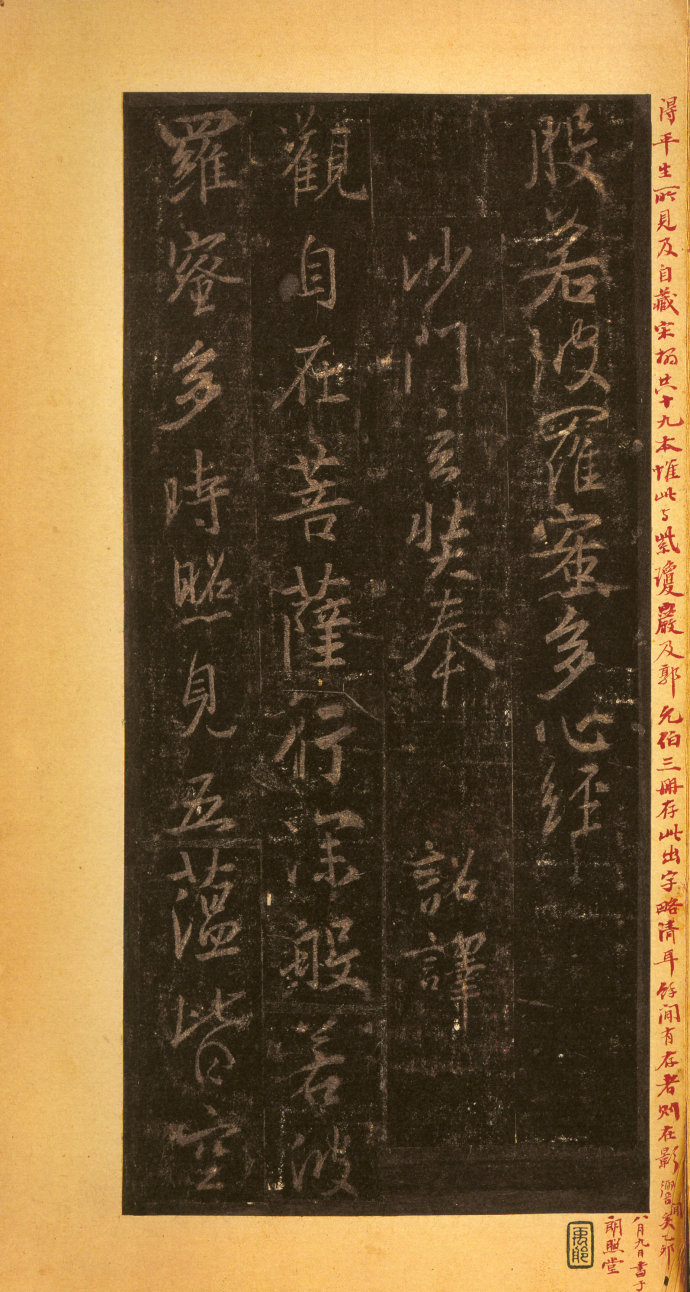 得平生所見及自藏宋搨共十九本惟此与紫瓊巖及郭允伯三冊存此出字略清耳餘間有存者則在影響間矣乙卯
八月九日書于
朗照堂
般若波羅蜜多心經
沙門玄奘奉 詔譯
觀自在菩薩行深般若波
羅蜜多時照見五蘊皆空